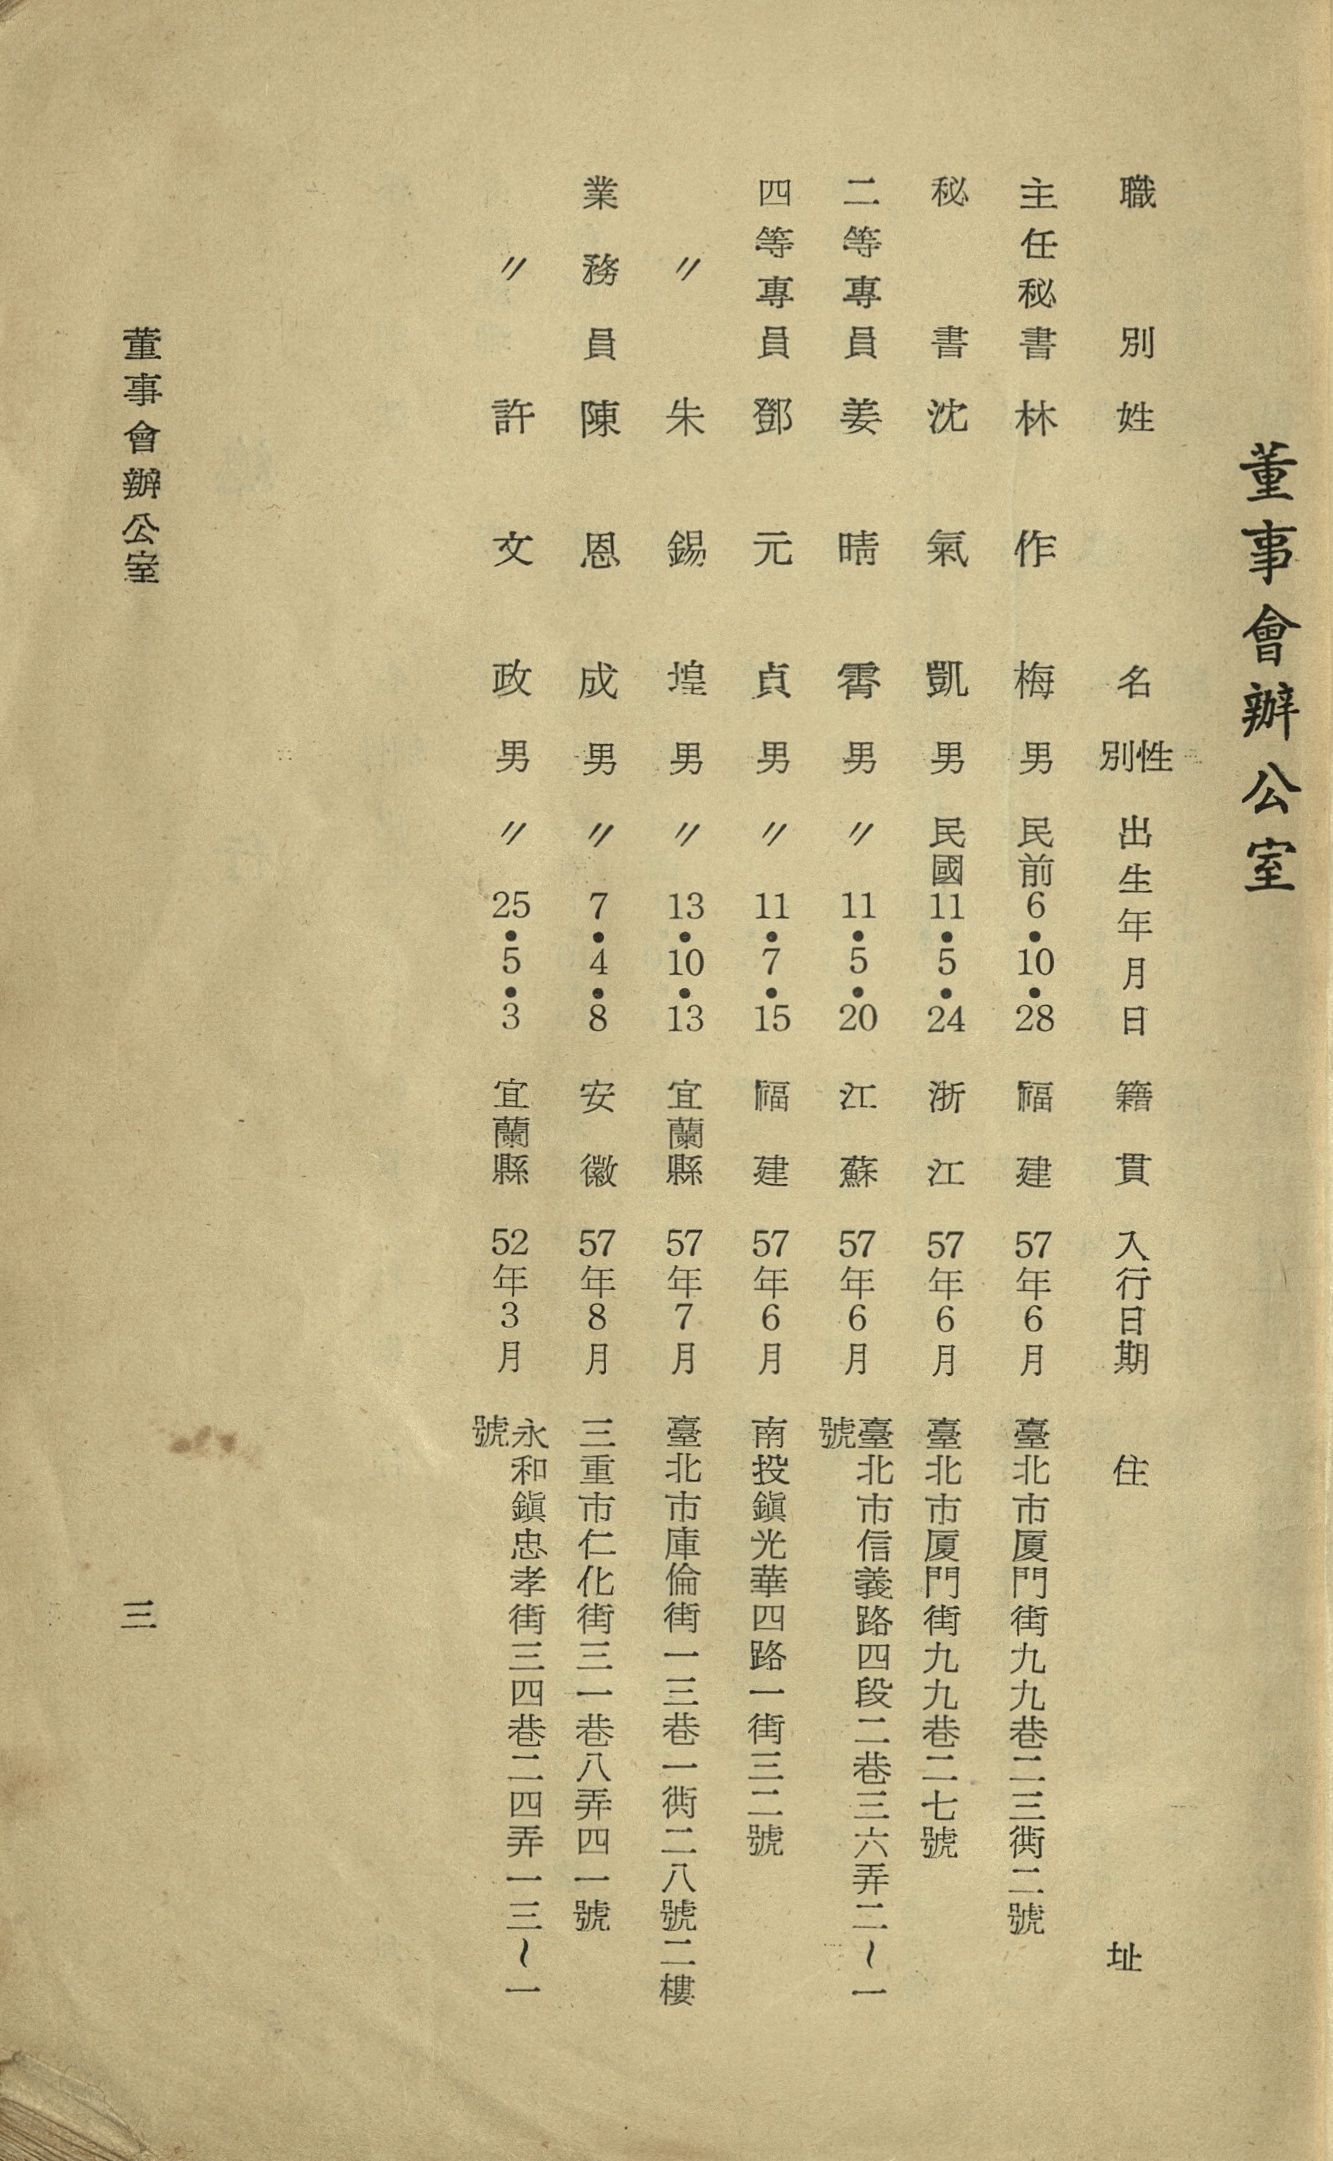 董事會辦公室
職別 姓名 性別 出生年月日 籍貫 入行日期 住址
主任秘書 林作梅 男 民前6•10•28 福建 57年6月 臺北市厦門街九九巷二三衖二號
秘書 沈氣凱 男 民國11•5•24 浙江 57年6月 臺北市厦門街九九巷二七號
二等專員 姜晴霄 男 〃11•5•20 江蘇 57年6月 臺北市信義路四段二巷三六弄二~一
號
四等專員 鄧元貞 男 〃11•7•15 福建 57年6月 南投鎮光華四路一街三二號
〃 朱錫堭 男 〃13•10•13 宜蘭縣 57年7月 臺北市庫倫街一三巷一衖二八號二樓
業務員 陳恩成 男 〃7•4•8 安徽 57年8月 三重市仁化街三一巷八弄四一號
〃 許文政 男 〃25•5•3 宜蘭縣 52年3月 永和鎮忠孝街三四巷二四弄一三~一
號
董事會辦公室
三